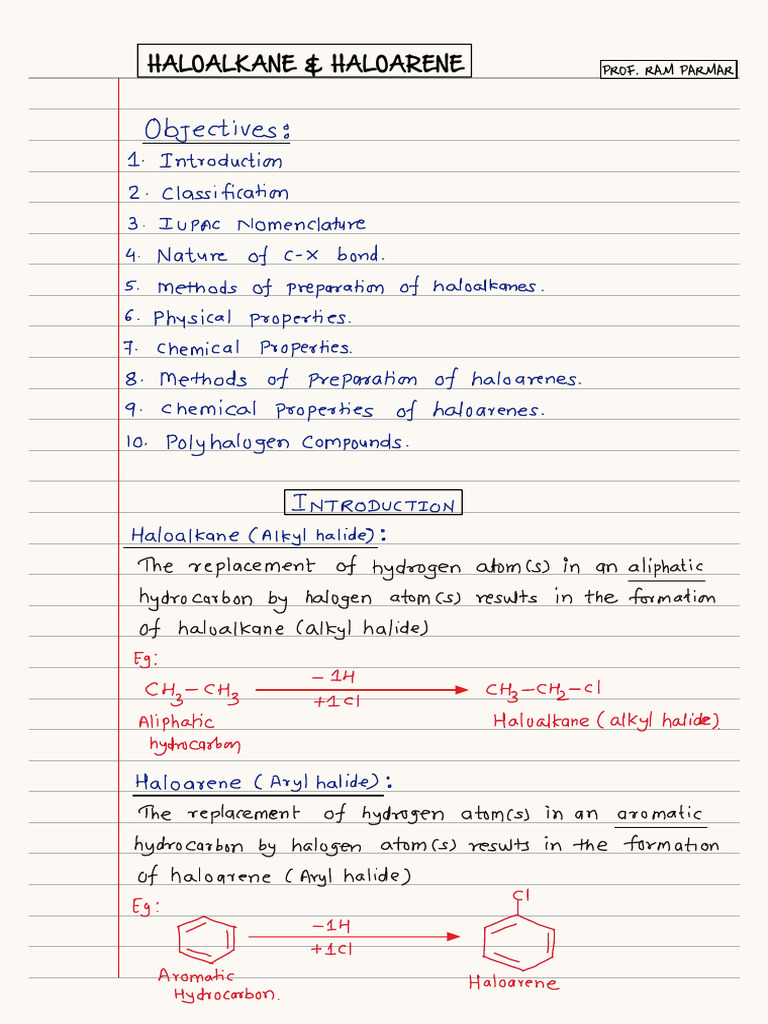 HALOALKANE & HALOARENE
PROF. RAM PARMAR
Objectives:
1. Introduction
2. Classification
3. IUPAC Nomenclature
4. Nature of C-X bond.
5. Methods of preparation of haloalkanes.
6. Physical properties.
7. Chemical Properties.
8. Methods of preparation of haloarenes.
9. Chemical Properties of haloarenes.
10. Polyhalogen Compounds.
INTRODUCTION
Haloalkane (Alkyl halide):
The replacement of hydrogen atom(s) in an aliphatic
hydrocarbon by halogen atom(s) results in the formation
of haloalkane (alkyl halide)
Eg:
- 1H
CH3-CH3 CH3-CH2-Cl
+1Cl
Aliphatic Haloalkane (alkyl halide)
hydrocarbon
Haloarene (Aryl halide):
The replacement of hydrogen atom(s) in an aromatic
hydrocarbon by halogen atom(s) results in the formation
of haloarene (Aryl halide)
Cl
Eg:
-1H
+1Cl
Aromatic Haloarene
Hydrocarbon.